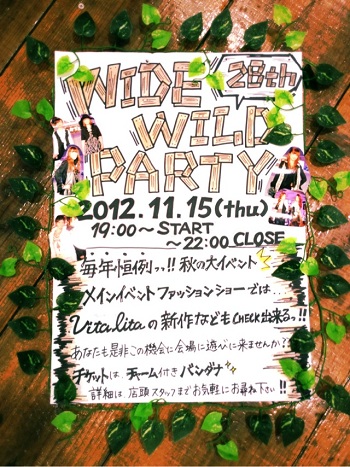 WIDE
28th
WILD
PARTY
2012.11.15(thu)
19:00～START
～22:00 CLOSE
毎年恒例ッ、!! 秋の大イベント
メインイベントファッションショーでは…
Vitalitaの新作などもCHECK出来るっ!!
あなたも是非この機会に会場に遊びに来ませんか?
チケットは、チャーム付きバンダナ
詳細は、店頭スタッフまでお気軽にお尋ね下さい!!